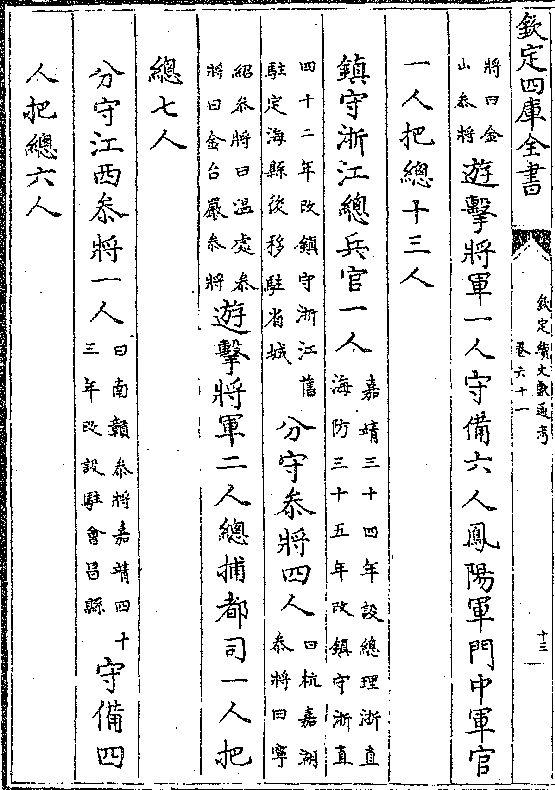 欽定四庫全書
欽定續文獻通考
卷六十一
十三
將曰金
山叅將
遊擊將軍一人守備六人鳳陽軍門中軍官
一人把總十三人
鎮守浙江總兵官一人
嘉靖三十四年設總理浙直
海防三十五年改鎮守浙直
四十二年改鎮守浙江舊
駐定海縣後移駐省城
分守叅將四人
曰杭嘉湖
叅將曰寧
紹叅將曰溫處叅
將曰金台嚴叅將
遊擊將軍二人總捕都司一人把
總七人
分守江西叅將一人
曰南贛叅將嘉靖四十
三年改設駐會昌縣
守備四
人把總六人